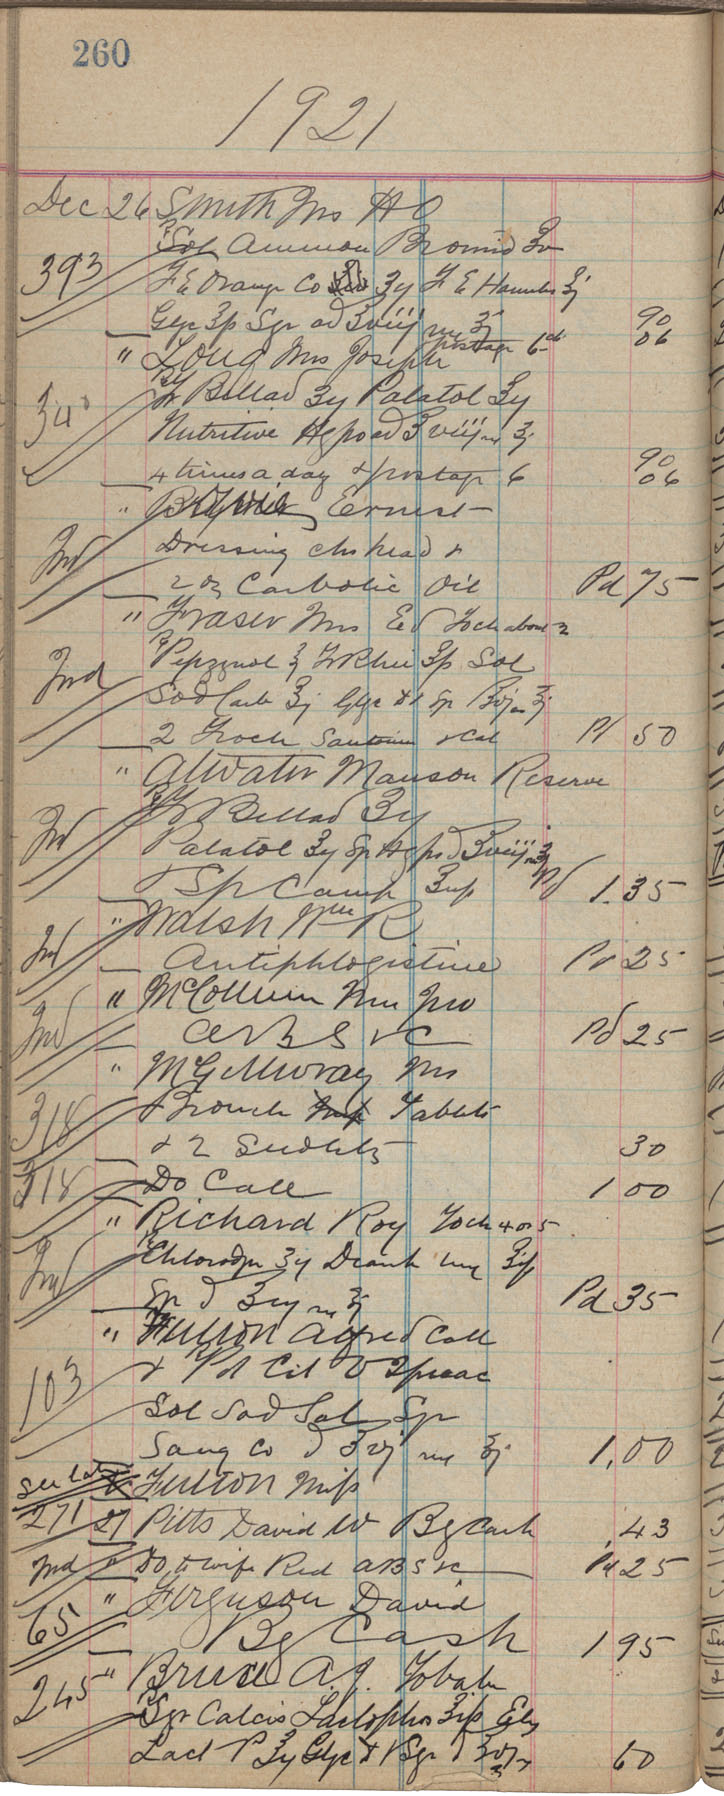 260
1921
Dec 26 Smith Mrs H O
Sol Ammon Bromid ʒv
393 F E Orange Co ʒij F E Hamelis ʒj
Glyc ℥p Syr ad ℥viij ʒj 90
postage 6 06
" Long Mrs Joseph
Tr Bellad ʒij Palatol ʒij
Nutritive Hypo ad ℥viij ʒj
4 times a day & postage 6 90 06
" Ernest
Ind Dressing chs head &
2 oz Carbolic Oil Pd 75
" Fraser Mrs Ed Toch about 2
Ind Pepzenol ʒ Tr Rhei ʒp Sol
Sod Carb ʒj Glyc
2 Troch Santonin & Cal Pd 50
" Atwater Manson Reserve
Tr Bellad ʒij
Ind Palatol ʒij Sp Hypo ad ℥viij ʒj
& Sp Camp ℥ip Pd 1.35
" Walsh Wm R
Ind Antiphlogistine Pd 25
" McCollum Mrs Jno
Ind A B S & C Pd 25
" McGillivray Mrs
318 Bronch Tablets
& 2 Seidlitz 30
318 Do Call 1 00
" Richard Roy Toch 4 or 5
Ind Chlorodyn ʒij
Syr ʒj Pd 35
" Fulton Alfred Call
103 & Pd Cit Ipecac
Sol Sod Sal Syr
Sang Co ℥vj ʒj 1.00
Fulton Miss
271 27 Pitts David W By Cash .43
Ind " Do to wife Red A B S & C Pd 25
" Ferguson David
65 By Cash 1 95
245 " Bruce A. J.
Syr Calcis Lactophos ℥ip Elix
Lact P ʒij Glyc Syr ad 60